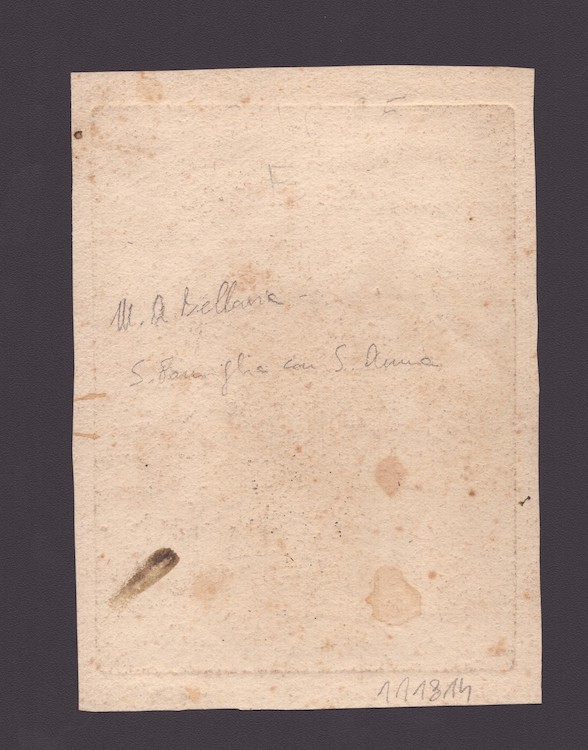 M. A Bellavia -
S. Famiglia con S. Anna
111314